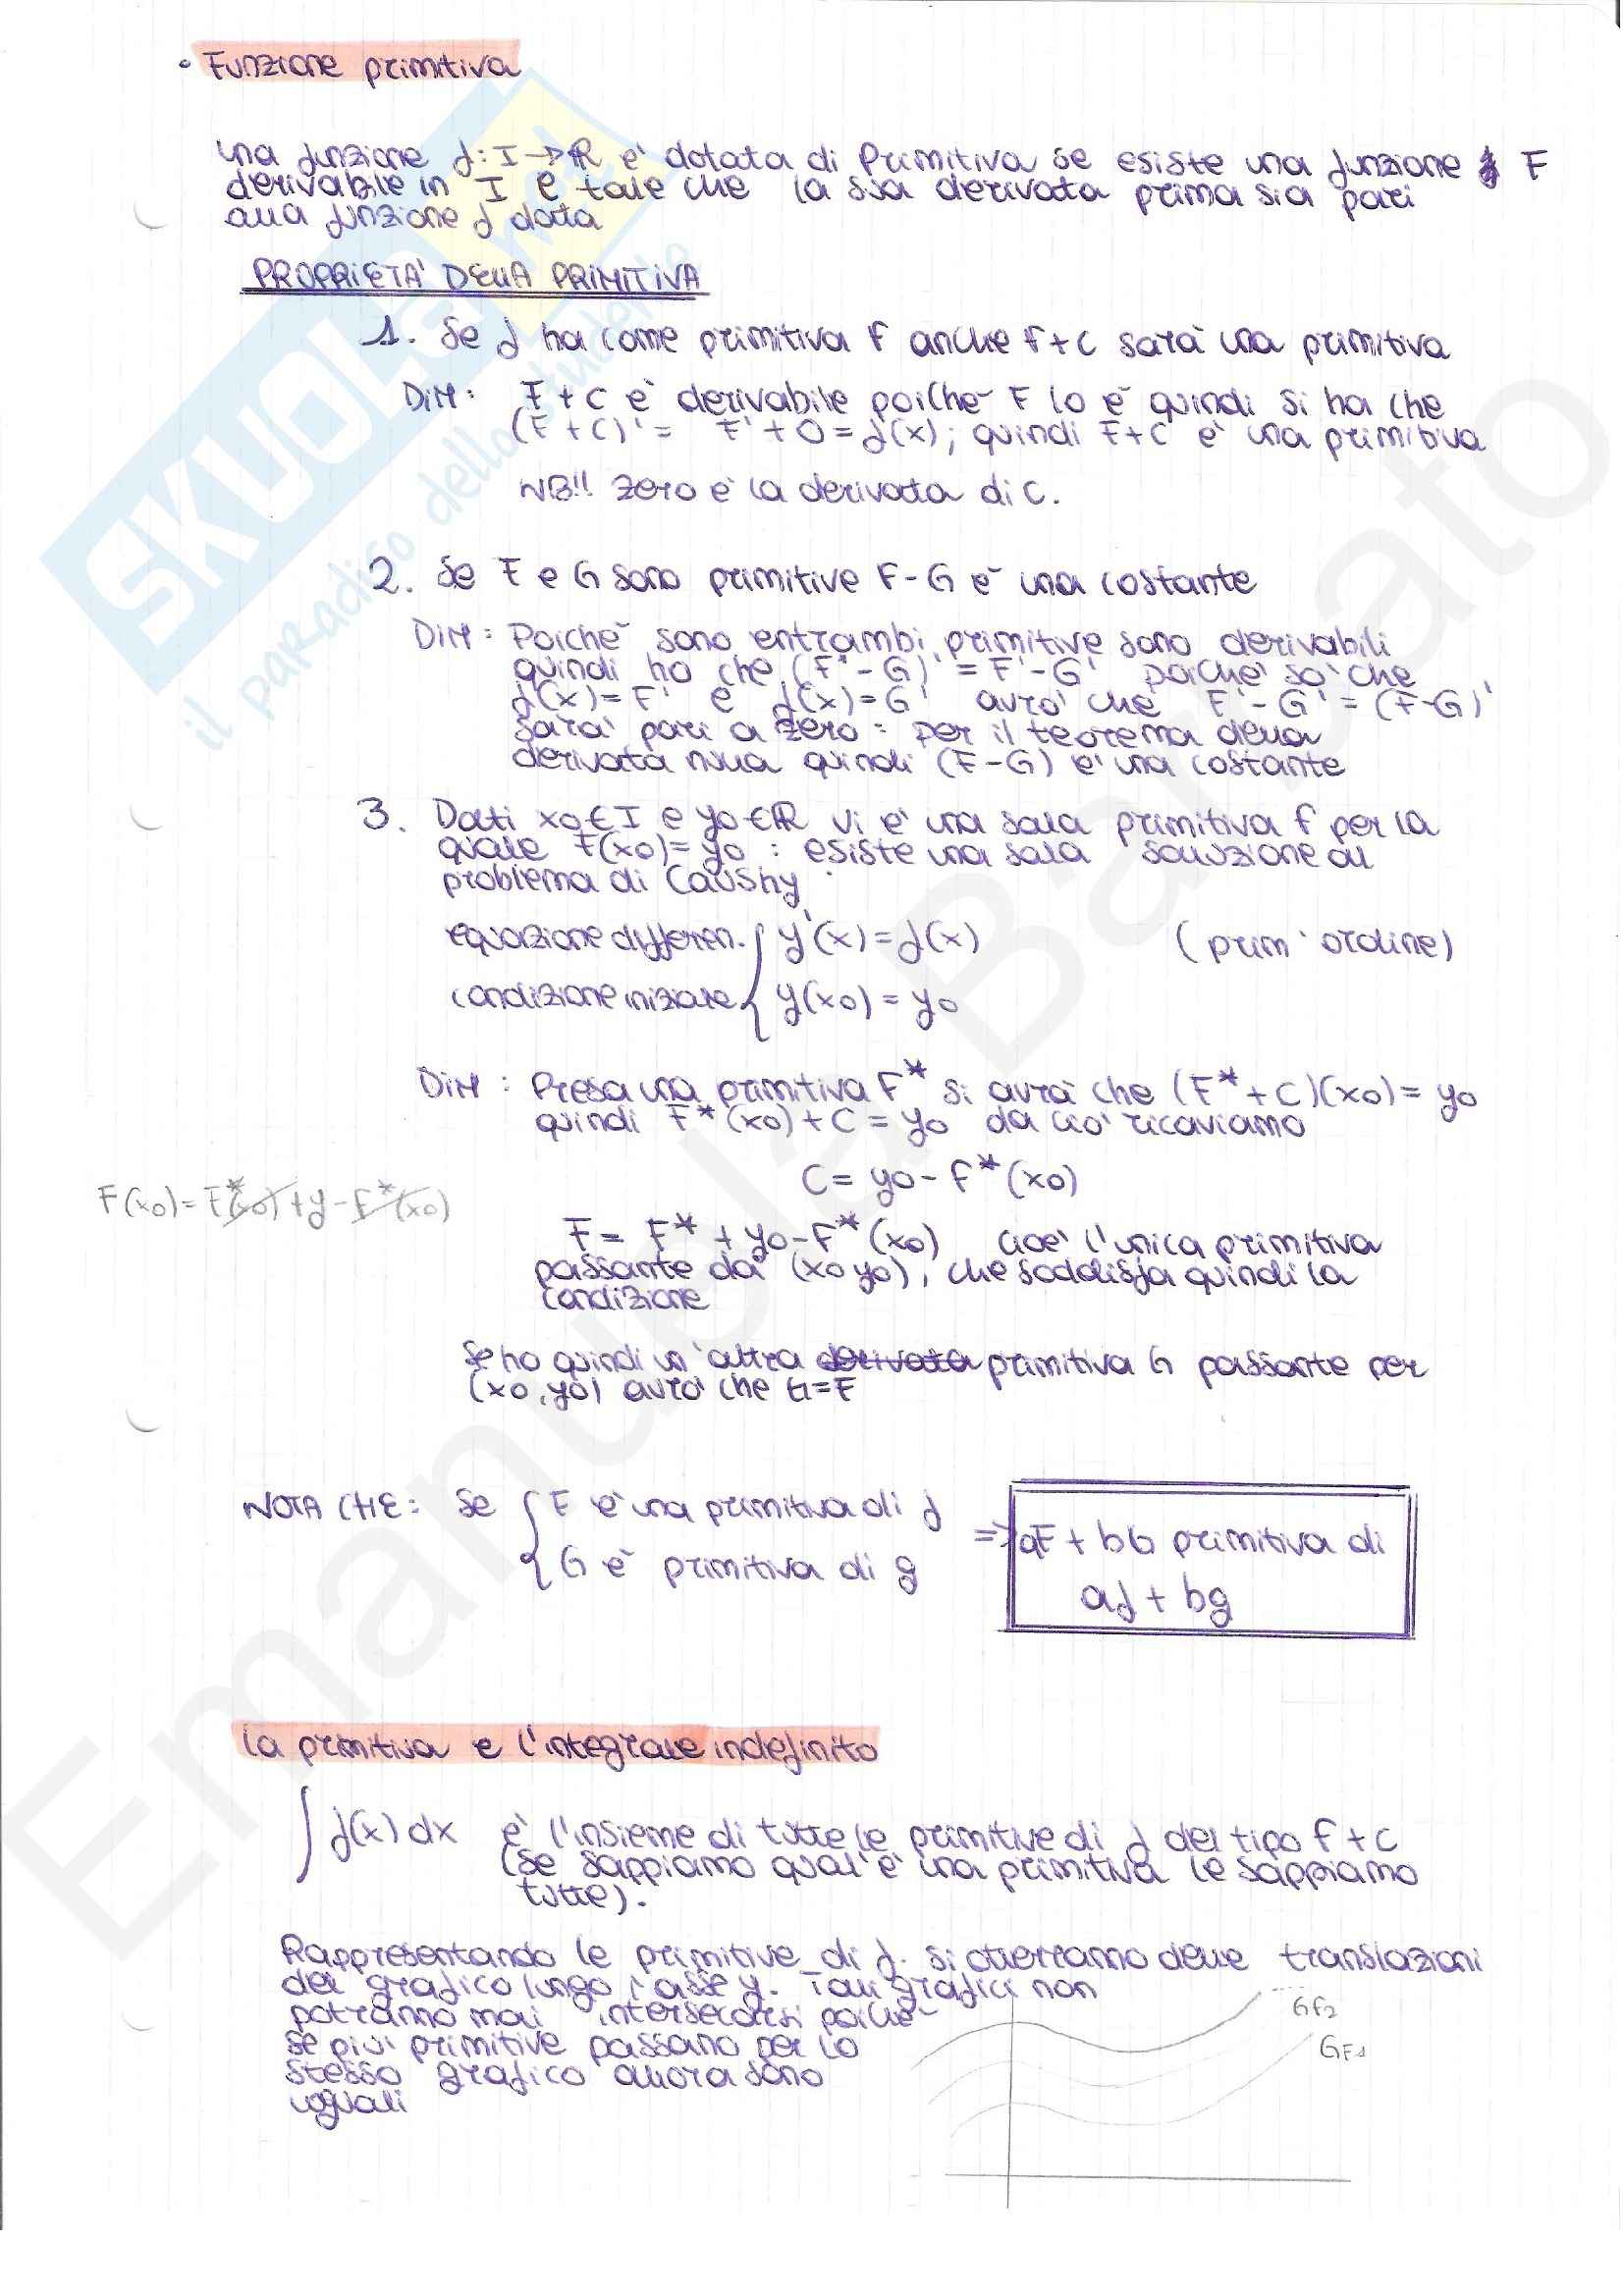 • Funzione primitiva
Una funzione f: I → ℝ è dotata di Primitiva se esiste una funzione F
derivabile in I e tale che la sua derivata prima sia pari
alla funzione f data
PROPRIETA' DELLA PRIMITIVA
1. Se f ha come primitiva F anche F+C sarà una primitiva
DIM: F + C è derivabile poiché F lo è quindi si ha che
(F + C)' = F' + 0 = f(x); quindi F+C è una primitiva
NB!! Zero è la derivata di C.
2. Se F e G sono primitive F-G è una costante
DIM: Poiché sono entrambi primitive sono derivabili
quindi ho che (F - G)' = F' - G' poiché so che
f(x) = F' e f(x) = G' avrò che F' - G' = (F-G)'
sarà pari a zero: per il teorema della
derivata nulla quindi (F-G) è una costante
3. Dati x0 ∈ I e y0 ∈ ℝ vi è una sola primitiva F per la
quale F(x0) = y0 : esiste una sola soluzione al
problema di Caushy
equazione differen. { y'(x) = f(x) (prim' ordine)
condizione iniziale { y(x0) = y0
DIM: Presa una primitiva F* si avrà che (F* + C)(x0) = y0
quindi F*(x0) + C = y0 da ciò ricaviamo
C = y0 - F*(x0)
F(x0) = F*(x0) + y - F*(x0)
F = F* + y0 - F*(x0) cioè l'unica primitiva
passante da (x0 y0), che soddisfa quindi la
condizione
Se ho quindi un'altra derivata primitiva G passante per
(x0, y0) avrò che G=F
NOTA CHE: Se { F è una primitiva di f
{ G è primitiva di g
=> aF + bG primitiva di
af + bg
La primitiva e l'integrale indefinito
∫ f(x) dx è l'insieme di tutte le primitive di f del tipo F + C
(se sappiamo qual'è una primitiva le sappiamo
tutte).
Rappresentando le primitive di f si otterranno delle translazioni
del grafico lungo l'asse y. Tali grafici non
potranno mai intersecarsi poiché
se più primitive passano per lo
stesso grafico allora sono
uguali
GF2
GF1
SKUOLA.net
il paradiso dello studente
Emanuela Barbato